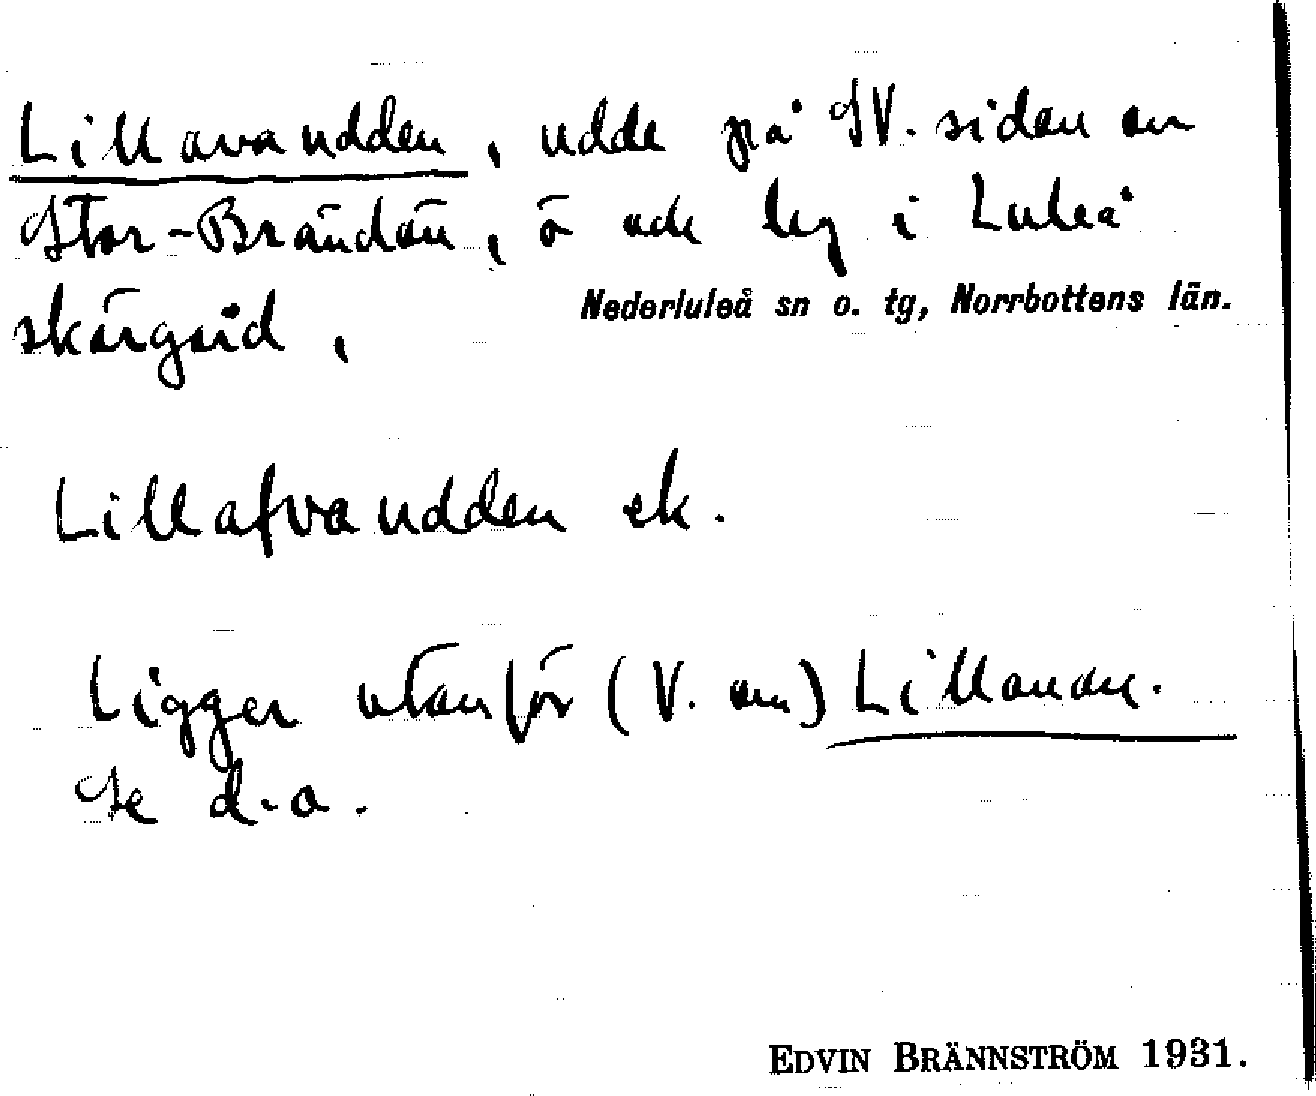 Lillavaudden, udde på SV. sidan av
Stor-Brändön, ö och lzg i Luleå
skärgård,
Nederluleå sn o. tg, Norrbottens län.
Lillafvaudden ek.
Ligger utanför (V. om) Lillavan.
Se d.o.
EDVIN BRÄNNSTRÖM 1931.